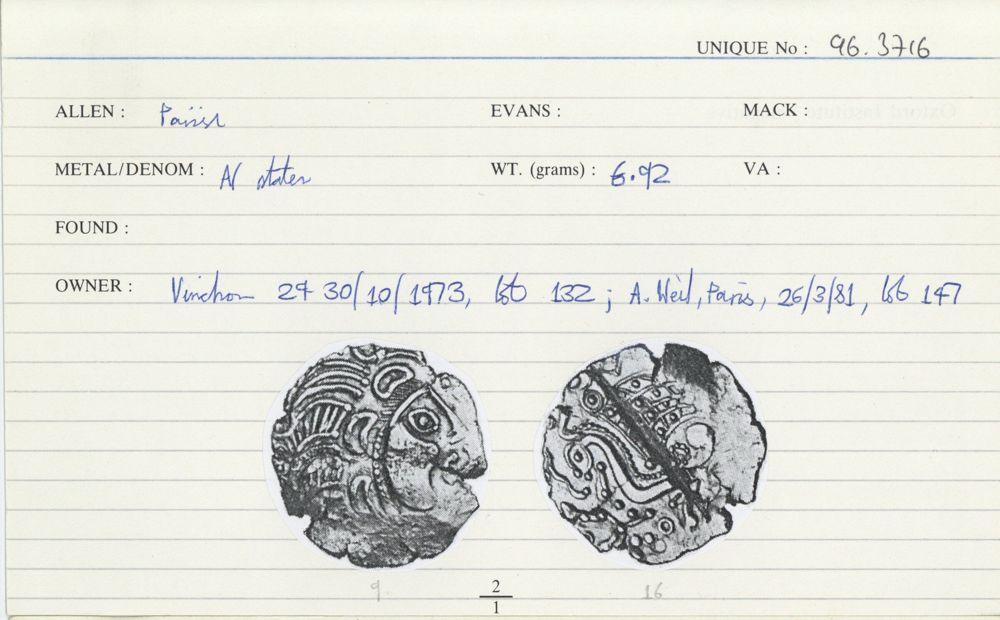 UNIQUE No : 96.3716
ALLEN : Parisii EVANS : MACK :
METAL/DENOM : AV stater WT. (grams) : 6.92 VA :
FOUND :
OWNER : Vinchon 29 30/10/1973, lot 132 ; A. Weil, Paris, 26/3/81, lot 147
9 2 16
1